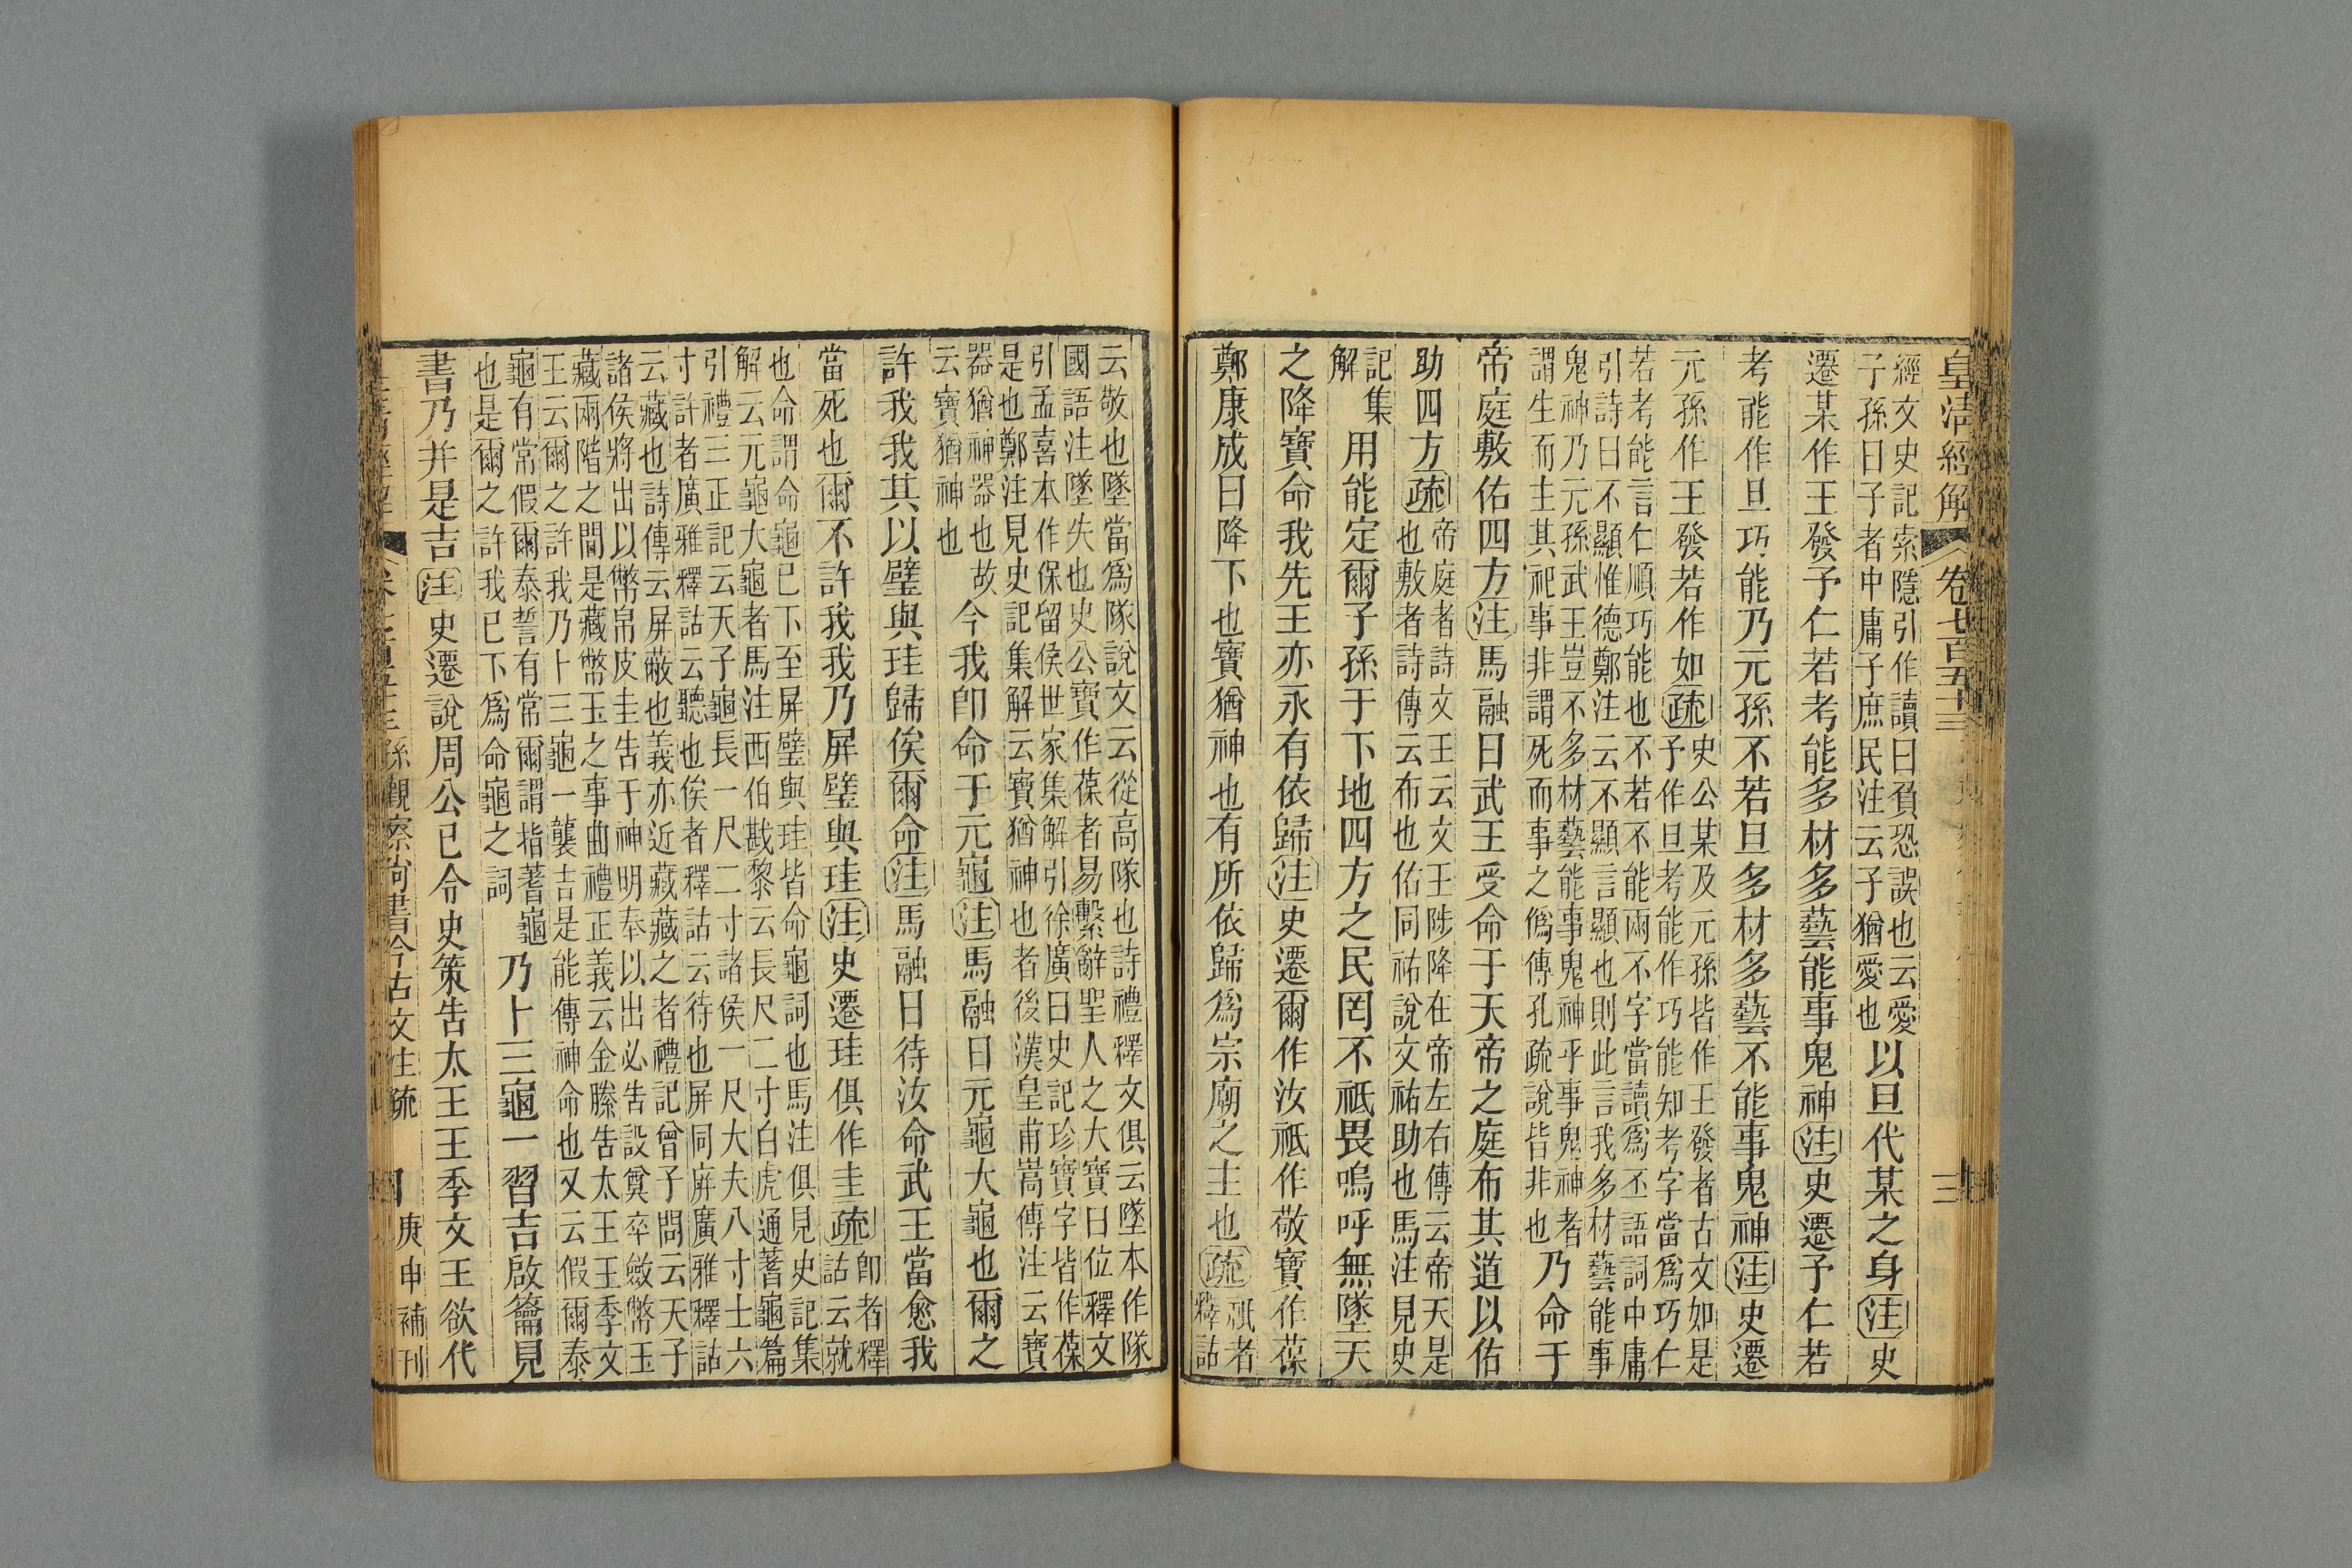 皇清經解
卷七百五十三
三
經文史記索隱引作讀曰負恐誤也云愛
子孫曰子者中庸子庶民注云子猶愛也
以旦代某之身注史
遷某作王發予仁若考能多材多藝能事鬼神注史遷予仁若
考能作旦巧能乃元孫不若旦多材多藝不能事鬼神注史遷
元孫作王發若作如疏
史公某及元孫皆作王發者古文如是
予作旦考能作巧能知考字當爲巧仁
若考能言仁順巧能也不若不能兩不字當讀爲丕語詞中庸
引詩曰不顯惟德鄭注云不顯言顯也則此言我多材藝能事
鬼神乃元孫武王豈不多材藝能事鬼神乎事鬼神者
謂生而主其祀事非謂死而事之僞傳孔疏說皆非也
乃命于
帝庭敷佑四方注馬融曰武王受命于天帝之庭布其道以佑
助四方疏
帝庭者詩文王云文王陟降在帝左右傳云帝天是
也敷者詩傳云布也佑同祐說文祐助也馬注見史
記集
解
用能定爾子孫于下地四方之民罔不祗畏嗚呼無墜天
之降寶命我先王亦永有依歸注史遷爾作汝祗作敬寶作葆
鄭康成曰降下也寶猶神也有所依歸爲宗廟之主也疏
祗者
釋詁
云敬也墜當爲隊說文云從高隊也詩禮釋文俱云墜本作隊
國語注墜失也史公寶作葆者易繫辭聖人之大寶曰位釋文
引孟喜本作保留侯世家集解引徐廣曰史記珍寶字皆作葆
是也鄭注見史記集解云寶猶神也者後漢皇甫嵩傳注云寶
器猶神器也故
云寶猶神也
今我卽命于元龜注馬融曰元龜大龜也爾之
許我我其以璧與珪歸俟爾命注馬融曰待汝命武王當愈我
當死也爾不許我我乃屏璧與珪注史遷珪俱作圭疏
卽者釋
詁云就
也命謂命龜已下至屏璧與珪皆命龜詞也馬注俱見史記集
解云元龜大龜者馬注西伯戡黎云長尺二寸白虎通蓍龜篇
引禮三正記云天子龜長一尺二寸諸侯一尺大夫八寸士六
寸許者廣雅釋詁云聽也俟者釋詁云待也屏同庰廣雅釋詁
云藏也詩傳云屏蔽也義亦近藏藏之者禮記曾子問云天子
諸侯將出以幣帛皮圭告于神明奉以出必告設奠卒斂幣玉
藏兩階之間是藏幣玉之事曲禮正義云金縢告太王王季文
王云爾之許我乃卜三龜一襲吉是能傳神命也又云假爾泰
龜有常假爾泰誓有常爾謂指蓍龜
也是爾之許我已下爲命龜之詞
乃卜三龜一習吉啟籥見
書乃并是吉注史遷說周公已令史策告太王王季文王欲代
孫觀察尙書今古文注疏
庚申補刊